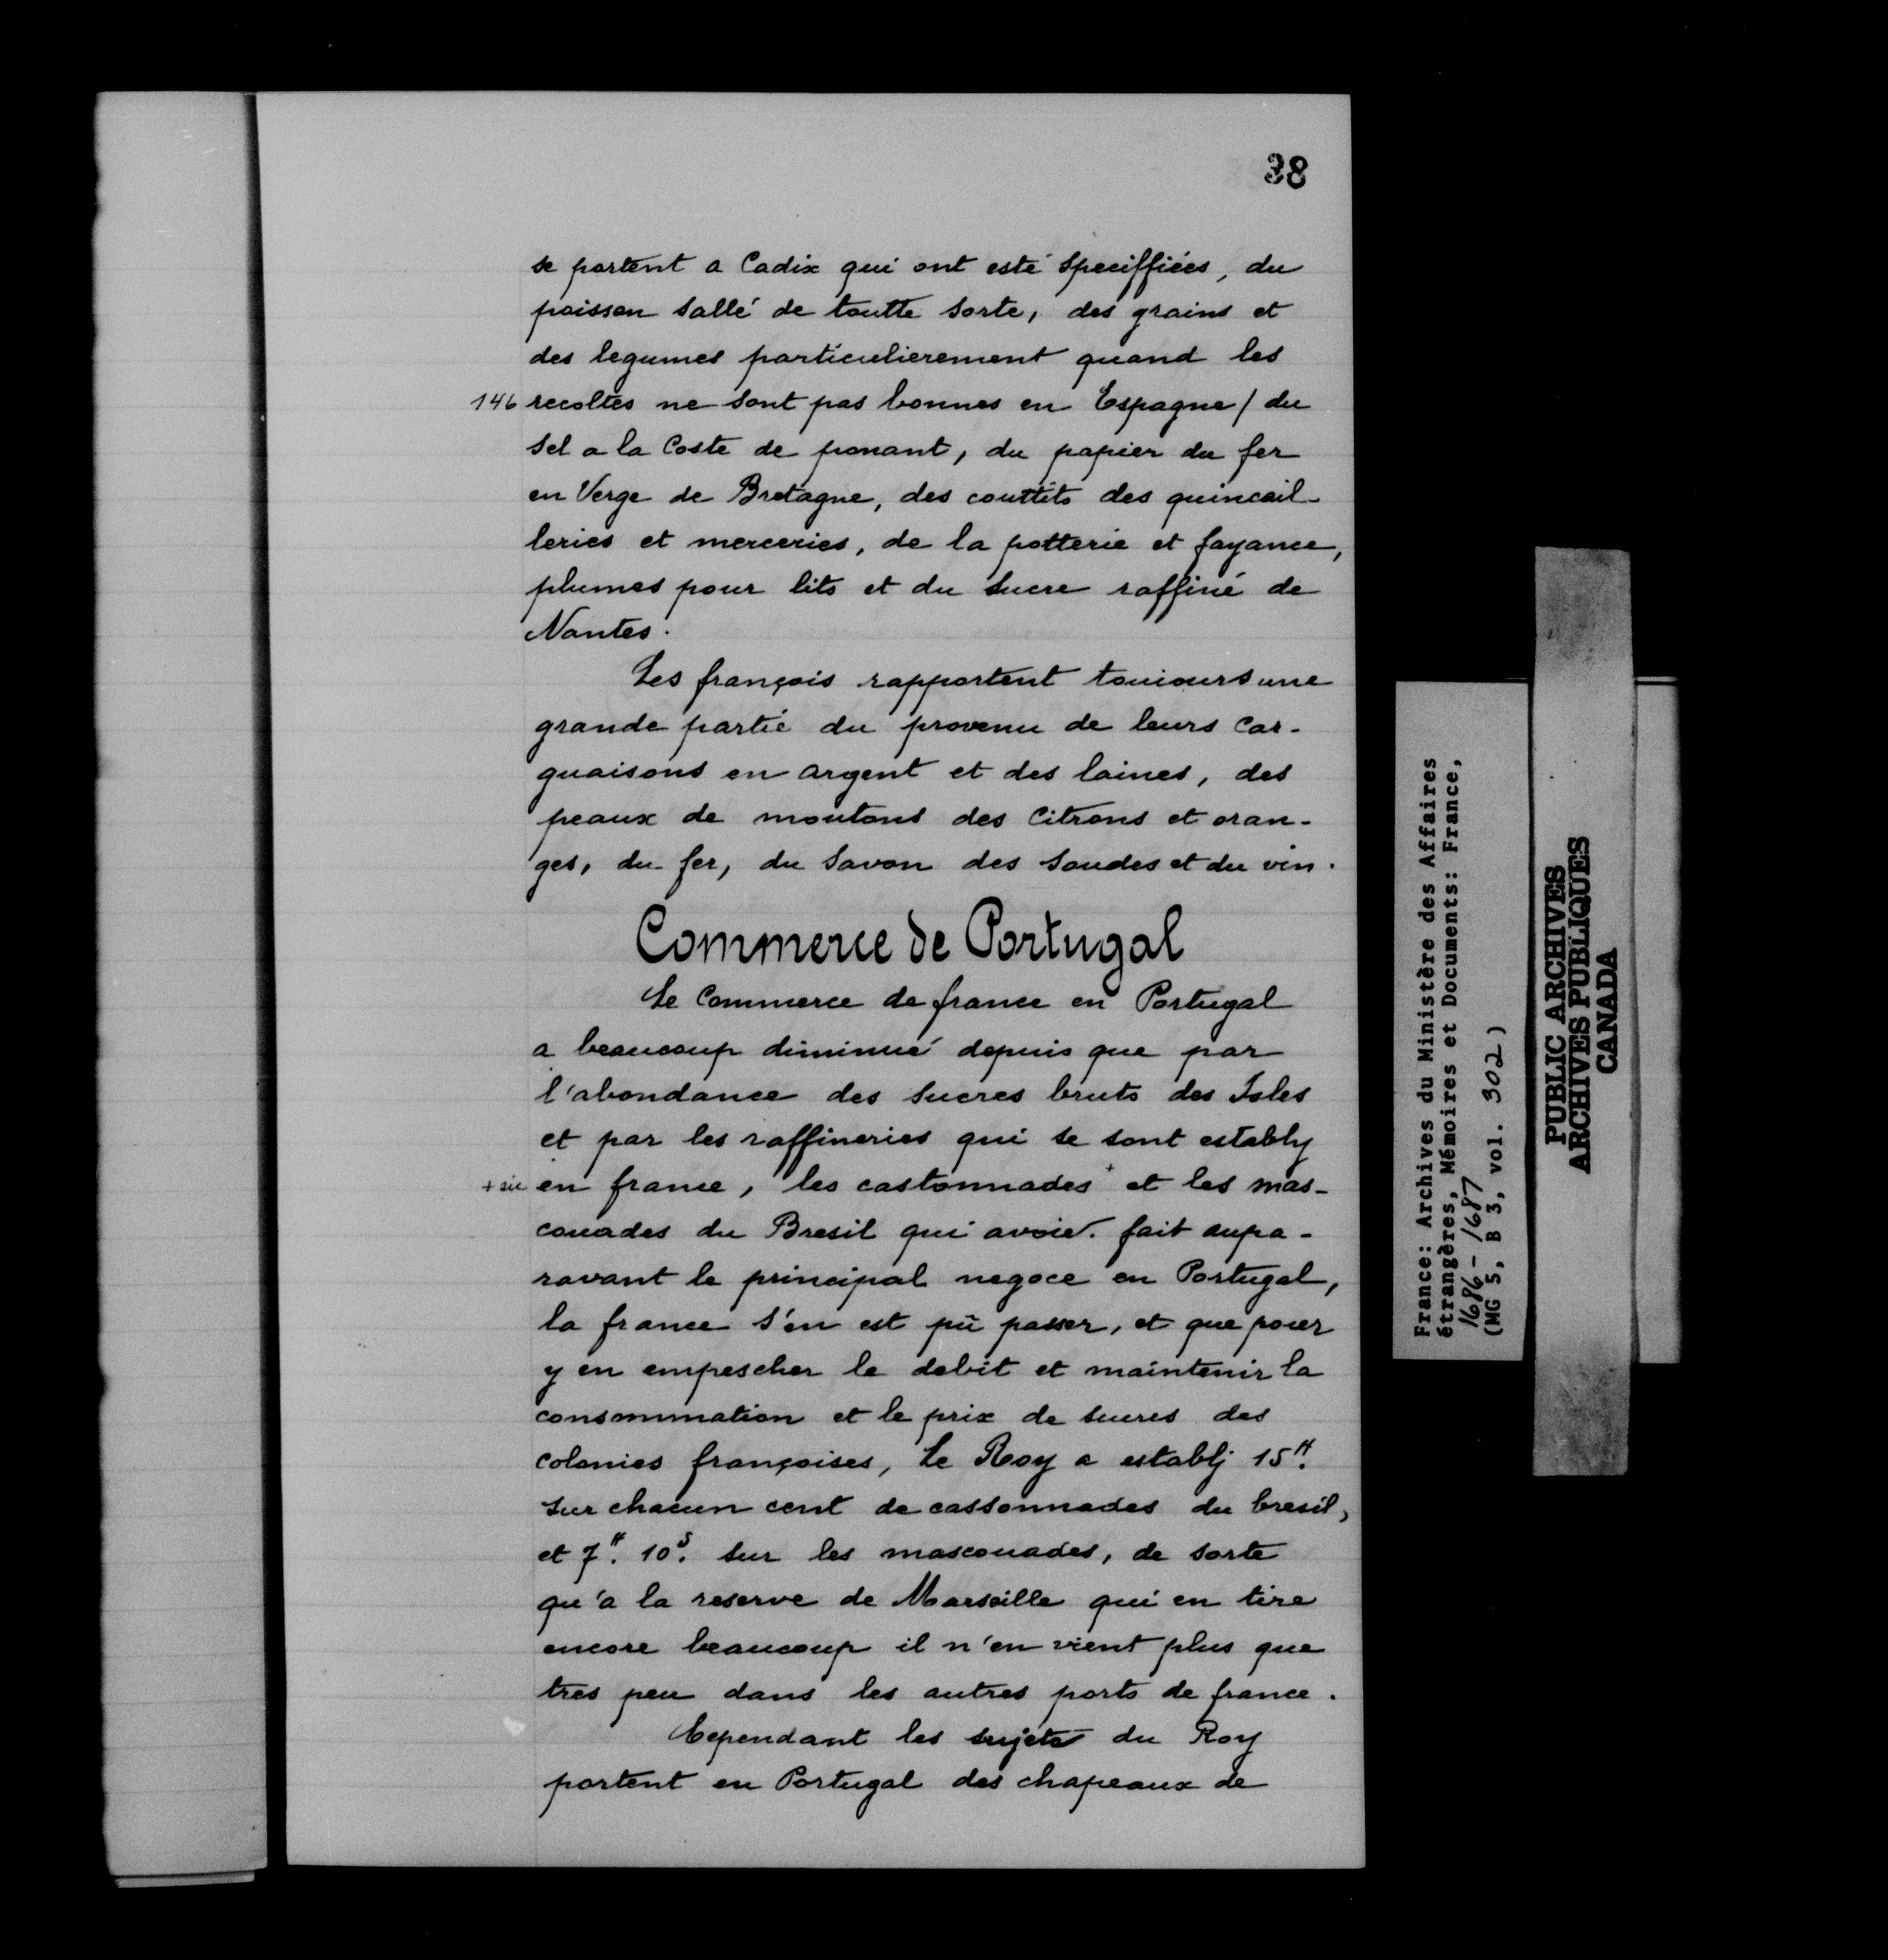 38
se portent a Cadix qui ont esté speciffiées, du
poisson sallé de toutte sorte, des grains et
des legumes particulierement quand les
146 recoltes ne sont pas bonnes en Espagne / du
sel a la Coste de ponant, du papier du fer
en Verge de Bretagne, des couttits des quincail-
leries et merceries, de la potterie et fayance,
plumes pour lits et du sucre raffiné de
Nantes.
Les françois rapportent touiours une
grande partie du provenu de leurs Car-
guaisons en argent et des laines, des
peaux de moutons des Citrons et oran-
ges, du fer, du Savon des Soudes et du vin.
Commerce de Portugal
Le Commerce de france en Portugal
a beaucoup diminué depuis que par
l'abondance des sucres bruts des Isles
et par les raffineries qui se sont establij
+ sic en france, les castonnades + et les mas-
couades du Bresil qui avoie. fait aupa-
ravant le principal negoce en Portugal,
la france s'en est pû passer, et que pour
y en empescher le debit et maintenir la
consommation et le prix de sucres des
colonies françoises, Le Roy a establj 15tt.
sur chacun cent de cassonnades du bresil,
et 7tt. 10s. sur les mascouades, de sorte
qu'a la reserve de Marseille qui en tire
encore beaucoup il n'en vient plus que
tres peu dans les autres ports de france.
Cependant les sujets du Roy
portent en Portugal des chapeaux de
France: Archives du Ministère des Affaires
étrangères, Mémoires et Documents: France,
1686-1687
(MG 5, B 3, vol. 302)
PUBLIC ARCHIVES
ARCHIVES PUBLIQUES
CANADA